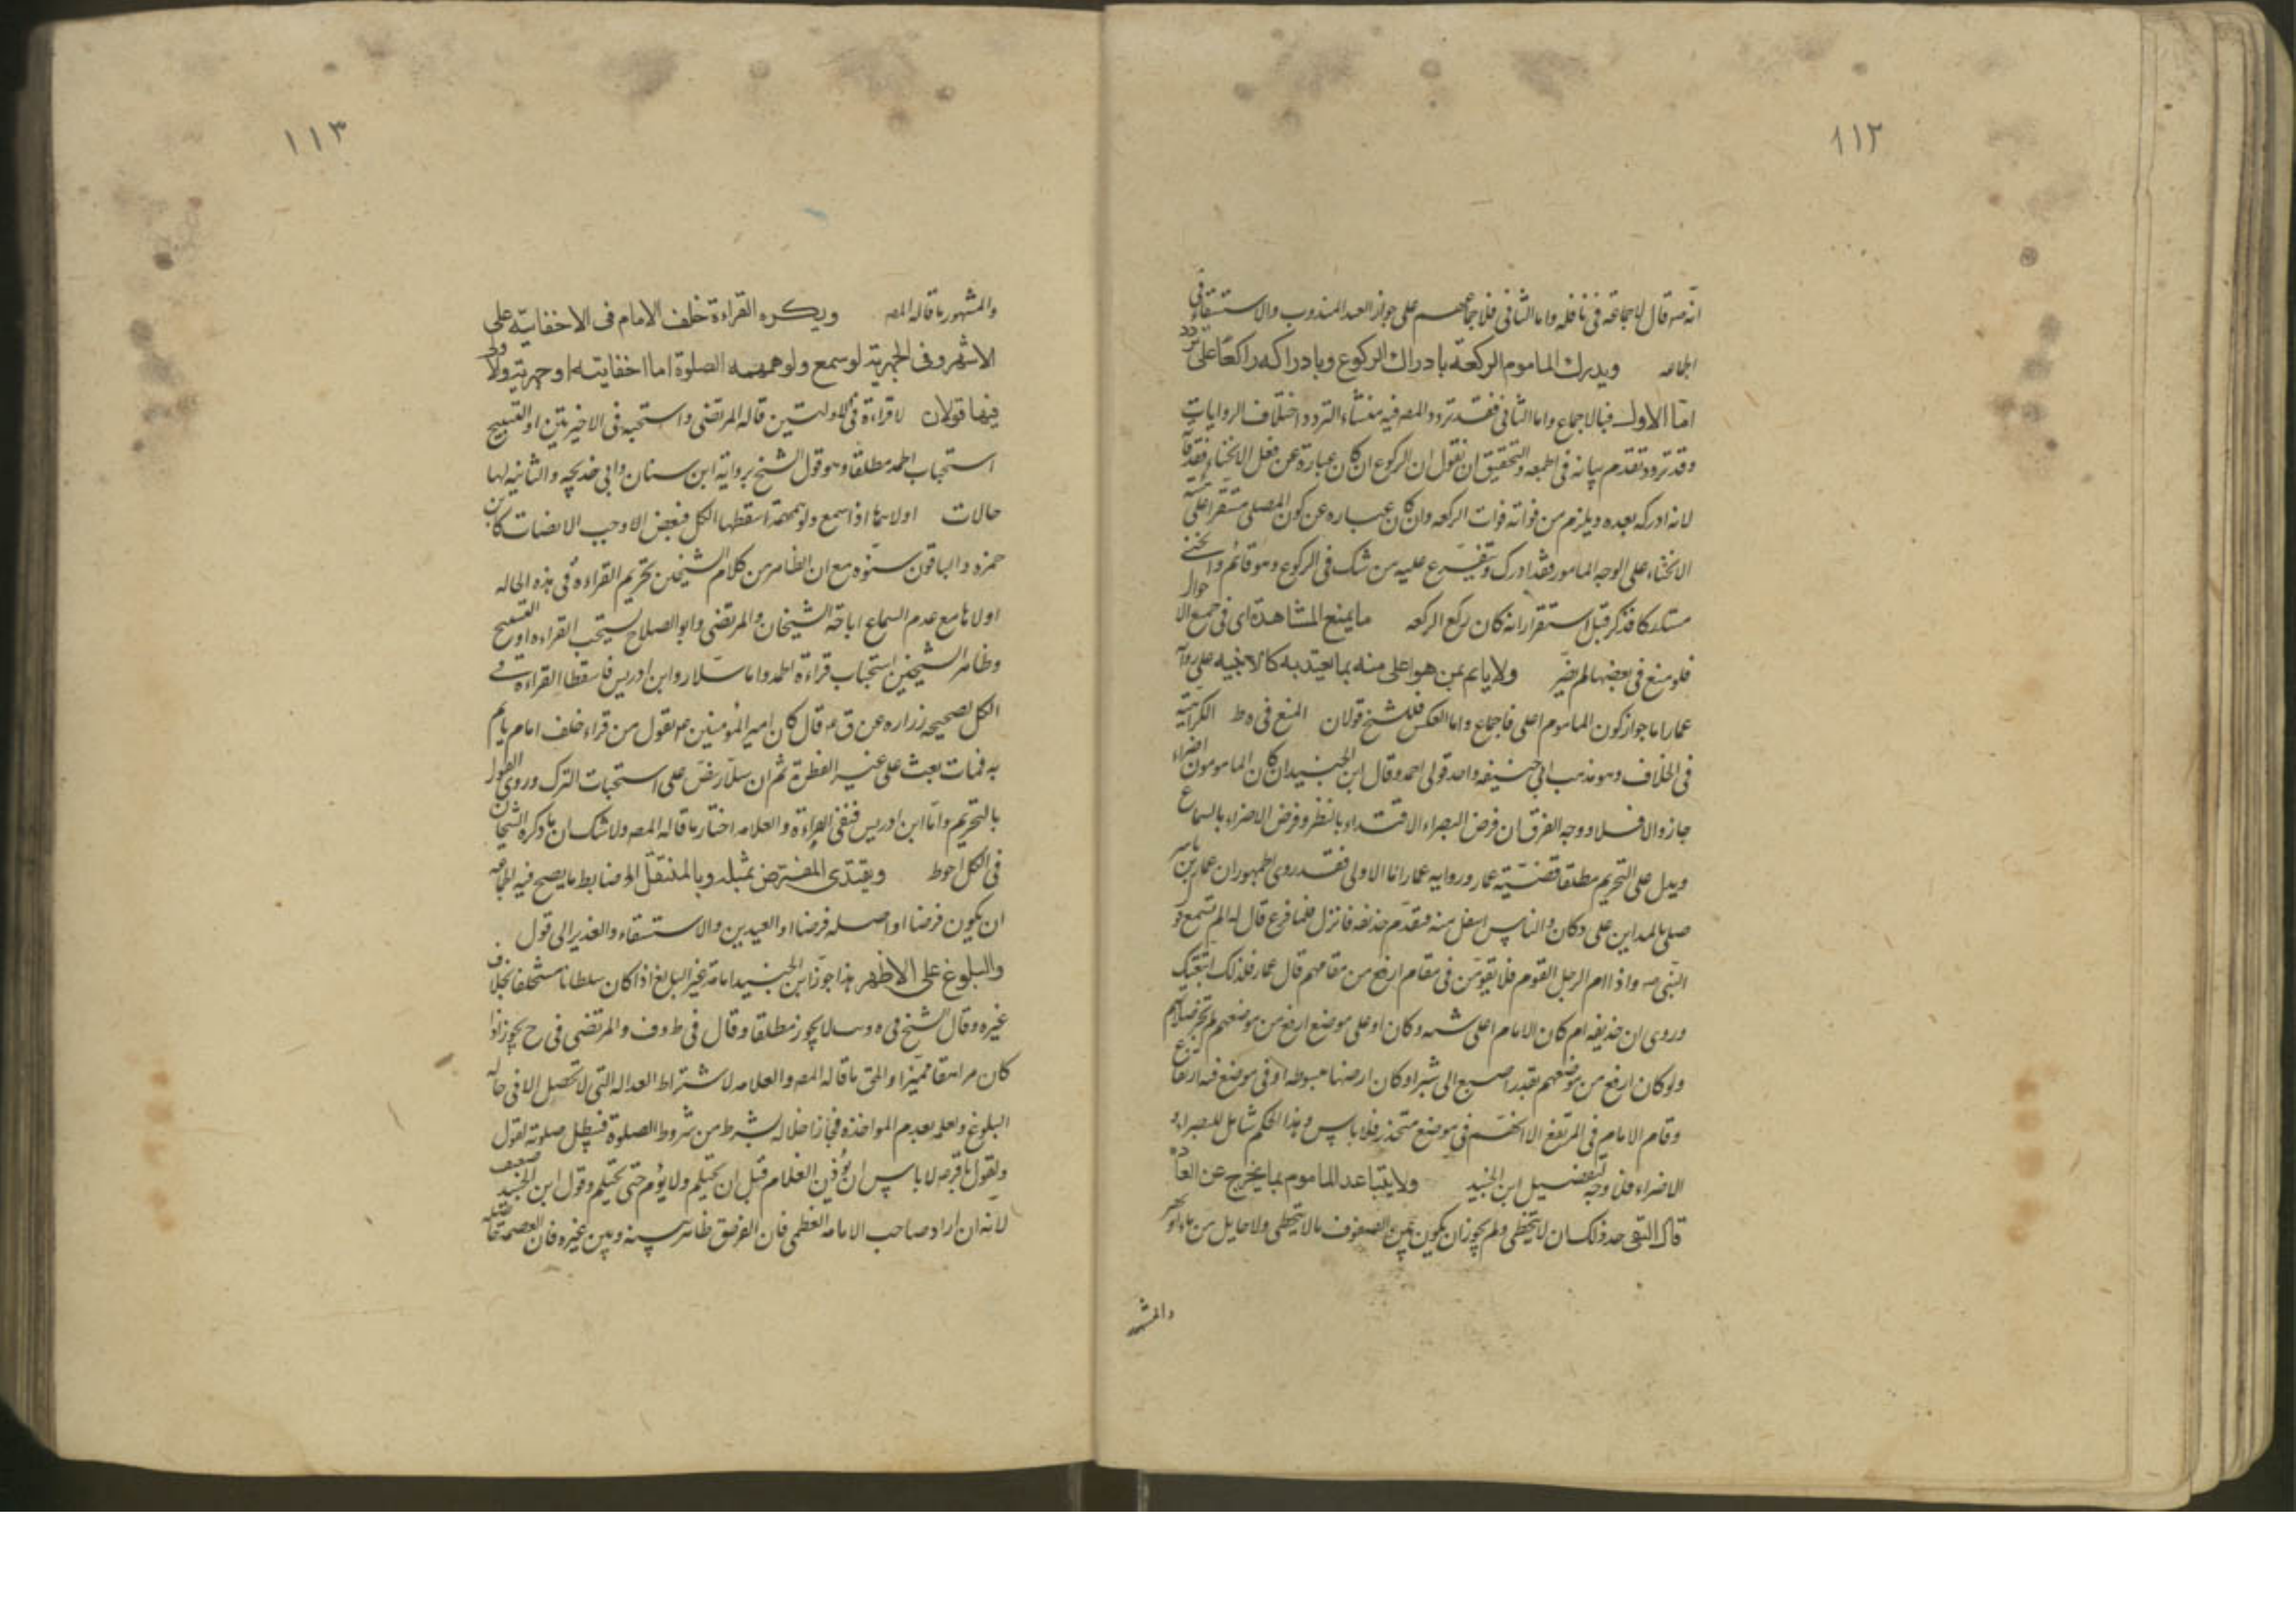 ١١٢
انه ص قال لا جماعة فى نافله واما الثانى فلاجماعهم على جواز العيد المندوب والاستسقاء فى
الجماعه ويدرك الماموم الركعة بادراك الركوع وبادراكه راكعًا على تردد
امّا الاول فبالاجماع واما الثانى فقد تردد المصر فيه منشاء التردد اختلاف الروايات
وقد تردد تقدم بيانه فى الجمعه والتحقيق ان نقول ان الركوع ان كان عبارة عن فعل الانحناء فقد فاته
لانه ادركه بعده ويلزم من فواته فوات الركعه وان كان عباره عن كون المصلى مستقرا على
الانحناء على الوجه المامور فقد ادرك ويتفرع عليه من شك فى الركوع وهو قائم وانحنى
مستدركا فذكر قبل استقراره انه كان ركع الركعه ما يمنع المشاهدة اى فى جميع الاحوال
فلو منع فى بعضها لم يضر ولا ياتم بمن هو اعلى منه بما يعتد به كالابنيه على روايه
عمار اما جواز كون الماموم اعلى فاجماع واما العكس فللشيخ قولان المنع فى ه ط الكراهية
فى الخلاف وهو مذهب ابى حنيفه واحد قولى احمد وقال ابن الجنيد ان كان المامومون اضراء
جاز والا فلا ووجه الفرق ان فرض البصراء الاقتداء بالنظر وفرض الاضراء بالسماع
ويدل على التحريم مطلقا قضيّة عمار وروايه عمار اما الاولى فقد روى الجمهور ان عمار بن ياسر
صلى بالمداين على دكان والناس اسفل منه فتقدم حذيفه فانزل فلما فرغ قال له الم تسمع قول
النبى ص واذا ام الرجل القوم فلا يقومن فى مقام ارفع من مقامهم قال عمار فلذلك اتبعتك
وروى ان حذيفه ام كان الامام اعلى شبه دكان او على موضع ارفع من موضعهم لم تجز صلاتهم
ولو كان ارفع من موضعهم بقدر اصبع الى شبر او كان ارضها مبسوطه او فى موضع فيه ارتفاع
وقام الامام فى المرتفع الا انهم فى موضع منحدر فلا باس وهذا الحكم شامل للبصراء و
الاضراء فلا وجه لتفضيل ابن الجنيد ولا يتباعد الماموم بما يخرج عن العادة
قال التقى حد ذلك ان لا يتخطى ولم يجوز ان يكون بين الصفوف ما لا يتخطى ولا حايل من ماء او نحر
والمشهور
١١٣
والمشهور ما قاله المصر ويكره القراءة خلف الامام فى الاخفاتيّة على
الاشهر وفى الجهرية لو سمع ولو همهمه الصلوة اما اخفاتيه او جهريه والاول
فيها قولان لا قراءة فى الاولتين قاله المرتضى واستحبه فى الاخيرتين او التسبيح
استحباب الحمد مطلقا وهو قول الشيخ برواية ابن سنان وابى خديجه والثانيه لها
حالات اولاهما اذا سمع ولو همهمة اسقطها الكل فبعض الاوجب الانصات كابن
حمزه والباقون سنّوه مع ان الظاهر من كلام الشيخين تحريم القراءة فى هذه الحاله
اولاها مع عدم السماع اباحة الشيخان والمرتضى وابو الصلاح يستحب القراءه او التسبيح
وظاهر الشيخين استحباب قراءة الحمد واما سلار وابن ادريس فاسقطا القراءة فى
الكل لصحيحه زراره عن ق ع قال كان امير المؤمنين ع يقول من قراء خلف امام ياتم
به فمات بعث على غير الفطرة ثم ان سلار نص على استحباب الترك وروى القول
بالتحريم وامّا ابن ادريس فنفى القراءة والعلامه اختار ما قاله المصر ولا شك ان ما ذكره الشيخان
فى الكل احوط ويقتدى المفترض بمثله وبالمتنفل الخ ضابط ما يصح فيه الجماعه
ان يكون فرضا او اصله فرضا او العيدين والاستسقاء والغدير الى قول
والبلوغ على الاظهر هذا جوّز ابن الجنيد امامة غير البالغ اذا كان سلطانا مستخلفا بخلاف
غيره وقال الشيخ فى ه وسـ لا يجوز مطلقا وقال فى ط وف والمرتضى فى ح يجوز اذا
كان مراهقا مميّزا والحق ما قاله المصر والعلامه لاشتراط العداله التى لا تحصل الا فى حاله
البلوغ ولعلمه بعدم المواخذه فجاز اخلاله بشرط من شروط الصلوة فتبطل صلوته لقول
ولقول باقر ع لا باس ان يؤذن الغلام قبل ان يحتلم ولا يؤم حتى يحتلم وقول ابن الجنيد ضعيف
لانه ان اراد صاحب الامامه العظمى فان الفرق ظاهر بينه وبين غيره فان العصمة